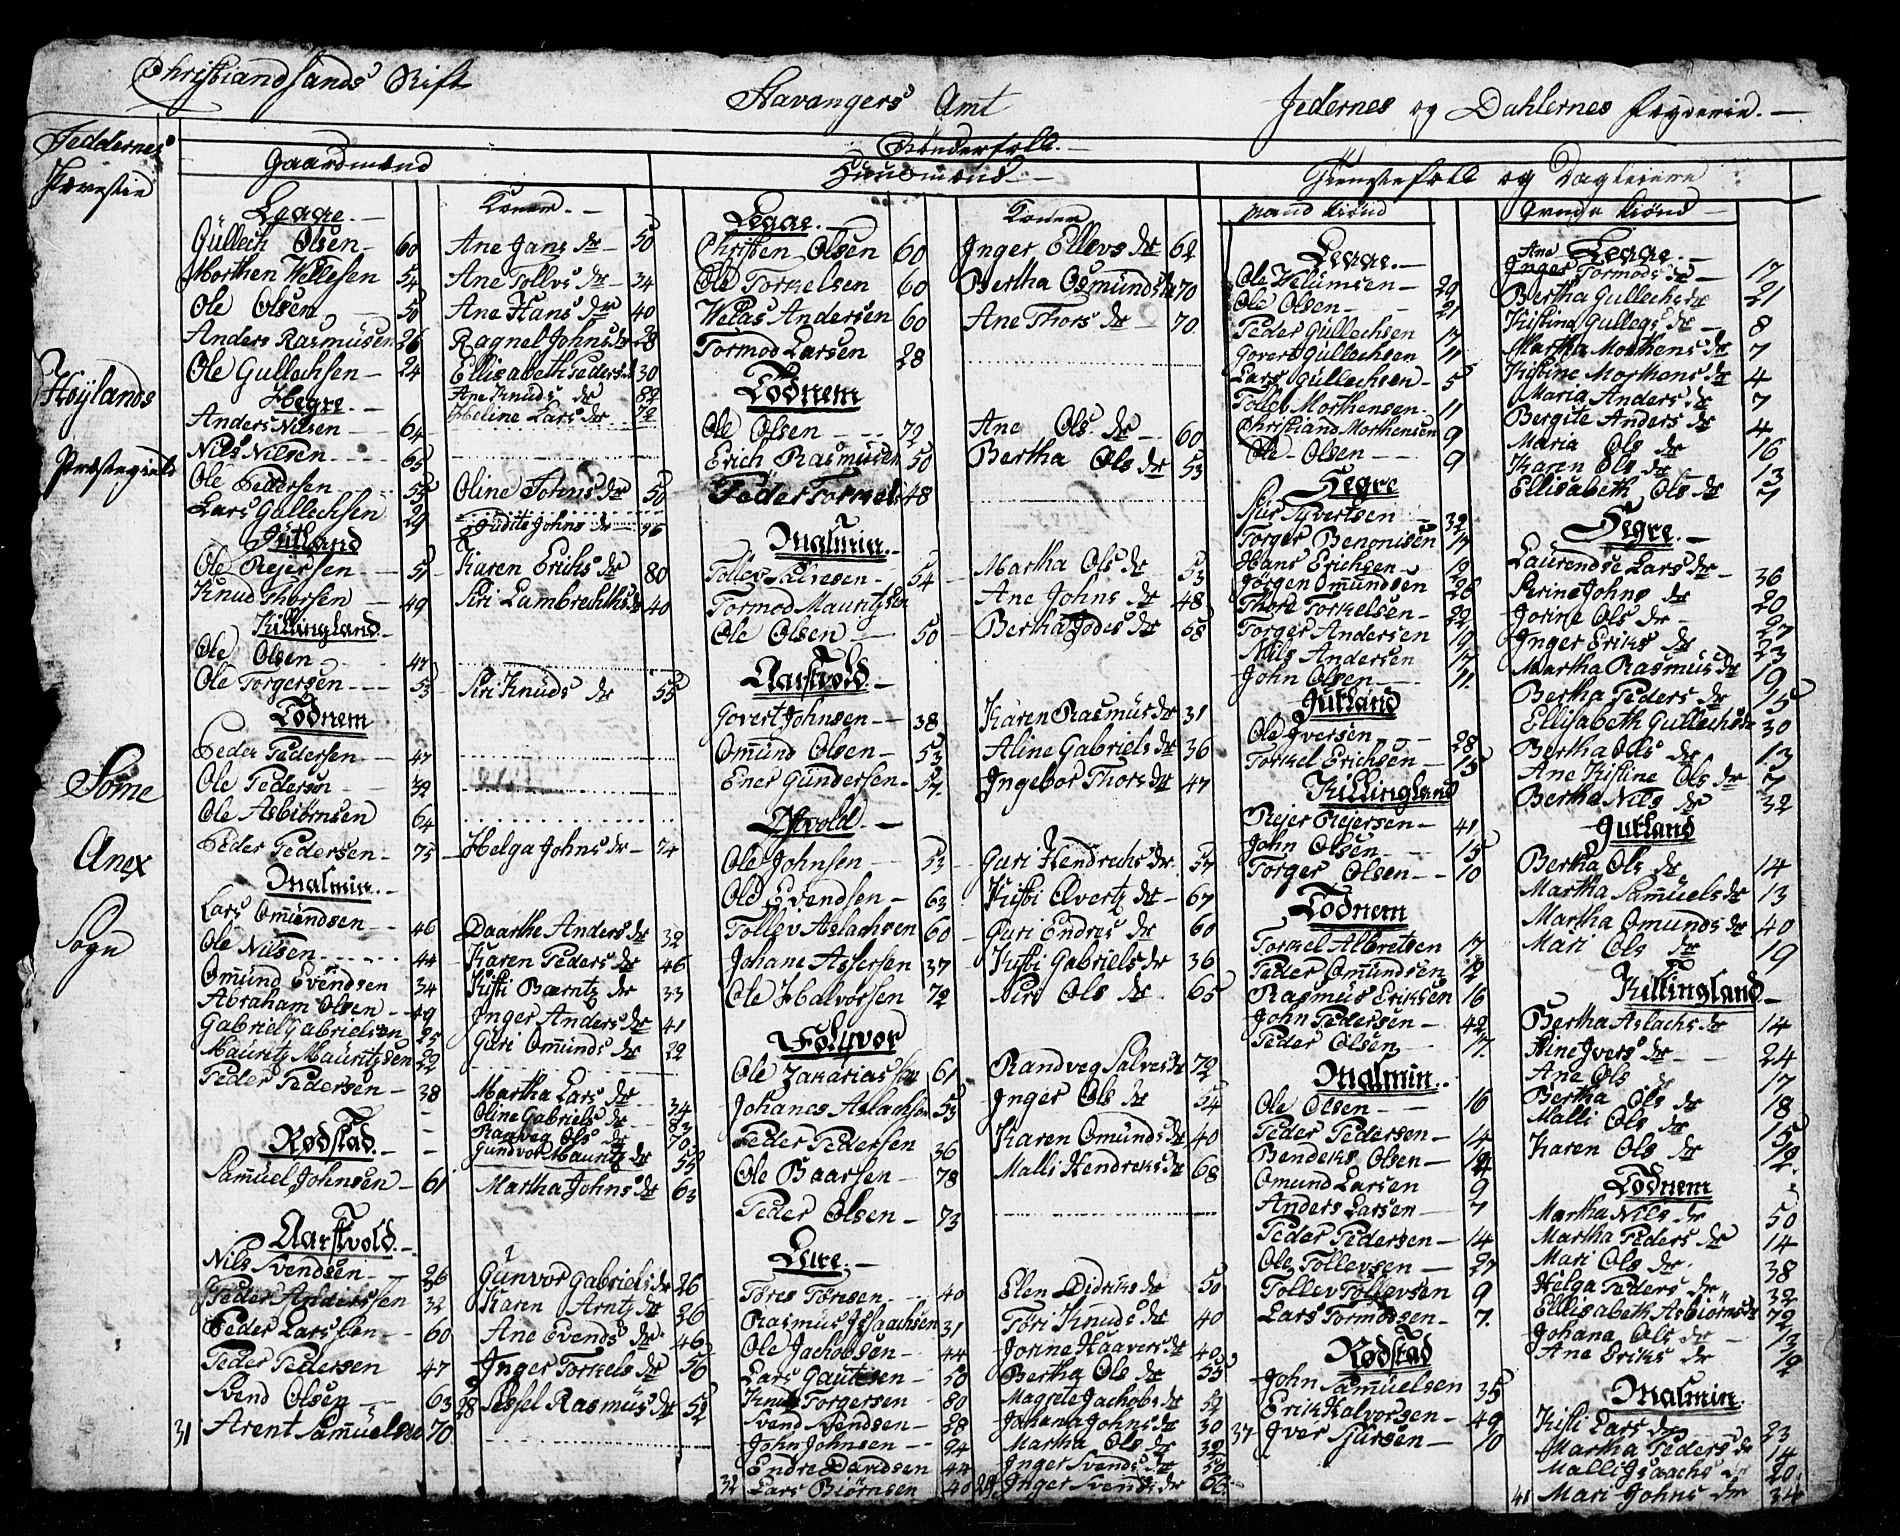 Christiandsands Stift
Stavangers Amt
Jedernes og Dahlernes Fogderie.
Jeddernes
Høylands
Præstegield
Some
Anex
Sogn
Bønderfolk.
Gaardmænd
Koner.
Legge.
Güllech Olsen 60
Ane Jans dr 50
Morthen Villesen 54
Ane Tollvs dr 34
Ole Olsen 50
Ane Hans dr 40
Anders Rasmüsen 26
Ragnel Johns dr 28
Ole Gullechsen 24
Ellisabeth Peders dr 30
Ane Knuds dr 82
Heline Lars dr 72
Hegre.
Anders Nilsen 64
Nils Nilsen 65
Ole Pedersen 55
Oline Johns dr 50
Lars Gullechsen 29
Judite Johns dr
Jutland
Ole Rejersen 51
Karen Erichs dr 80
Knud Thorsen 49
Siri Lambrechths dr 40
Killingland
Ole Olsen 47
Ole Torgersen 53
Siri Knüds dr 55
Lodnem
Peder Pedersen 47
Ole Pedersen 39
Ole Asbiørnsen 64
Peder Pedersen 75
Helga Johns dr 74
Malmin.
Lars Omündsen 46
Daarthe Anders dr 32
Ole Nilsen 44
Karen Peders dr 46
Omund Evendsen 34
Kisti Bærntz dr 33
Abraham Olsen 49
Inger Anders dr 41
Gabriel Gabrielsen 25
Guri Omunds dr 22
Mauritz Mauritzsen 22
Peder Pedersen 38
Martha Lars dr 34
Oline Gabriels dr 83
Ragveg Ols dr 70
Gundvor Mauritz dr 55
Rødstad.
Samuel Johnsen 61
Martha Johns dr 63
Aarstvold.
Nils Svendsen 26
Gunvor Gabriels dr 26
Peder Anderssen 32
Karen Arntz dr 26
Peder Larssen 60
Ane Evends dr 46
Peder Pedersen 47
Inger Torkels dr 50
Svend Olsen 63
28 Sessel Rasmüs dr 52
31 Arent Samuelsen 70
Huusmænd
Koner
Legge.
Christen Olsen 60
Inger Ellevs dr 62
Ole Torkelsen 60
Bertha Osmünds dr 70
Velas Andersen 60
Ane Thors dr 70
Tormod Larsen 28
Lodnem
Ole Olsen 72
Ane Ols dr 60
Erich Rasmusen 50
Bertha Ols dr 53
Peder Torkels 48
Malmin.
Tollev Salvesen 54
Martha Ols dr 53
Tormod Mauritzsen
Ane Johns dr 48
Ole Olsen 50
Bertha Jodes dr 58
Aarstvold.
Govert Johnsen 38
Karen Rasmus dr 31
Omund Olsen 53
Aline Gabriels dr 36
Ener Gundersen 52
Ingebor Thors dr 47
Ole Johnsen 53
Guri Hendrechs dr 57
Old Evendsen 63
Kisti Evertz dr 67
Tollev Aslachsen 60
Guri Endres dr 60
Johane Assersen 37
Kisti Gabriels dr 36
Ole Halvorsen 72
Siri Ols dr 65
Folyvor
Ole Zakariassen 61
Randveg Salves dr 72
Johanes Aslachsen 55
Inger Ols dr 54
Peder Pedersen 36
Karen Omunds dr 40
Ole Baarsen 78
Malli Hendreks dr 68
Peder Olsen 73
Lure.
Tøres Tøresen 40
Elen Didriks dr 50
Rasmus Isaachsen 31
Tøri Knuds dr 40
Ole Jachobsen 44
Jorine Haavers dr 40
Lars Gautesen 50
Bertha Ols dr 55
Knud Torgersen 80
Magrete Jachobs dr 52
Svend Svendsen 28
Johana Johns dr 30
John Johnsen 24
Martha Ols dr 32
Endre Davidsen 44
Inger Svends dr 50
32 Lars Biørnsen 40
29 Inger Svends dr 66
Tienestefolk og Dagleiere
Mand Kiønd
Legge.
Ole Velumsen 20
Ole Olsen 21
Peder Güllechsen 17
Govert Güllechsen 11
Lars Güllechsen 5
Tollev Morthensen 11
Christiand Morthensen 9
Ole Olsen 9
Hegre
Siur Syvertsen 32
Torger Benonisen 17
Hans Erichsen 19
Jørgen Omundsen 26
Thore Torkelsen 22
Torger Andersen 19
Nils Andersen 17
John Olsen 11
Jutland
Ole Iversen 28
Torkel Erichsen 15
Killingland
Rejer Rejersen 41
John Olsen 15
Torger Olsen 10
Lodnem
Torkel Albretsen 17
Peder Omundsen 12
Rasmus Eriksen 16
John Pedersen 42
Peder Olsen 17
Malmin.
Ole Olsen 16
Peder Pedersen 14
Bendiks Olsen 14
Omund Larsen 9
Anders Larsen 7
Peder Pedersen 14
Ole Tollevsen 27
Tollev Tollevsen 9
Lars Tormodsen 7
Rødstad
John Samüelsen 35
Erik Halvorsen 49
37 Iver Siursen 10
Qvinde Kiønd
Legge.
Ane
Inger Tormods dr 17
Bertha Gullechs dr 21
Kistina Gullegs dr 8
Martha Morthens dr 7
Kistine Morthens dr 4
Maria Anders dr 7
Bergite Anders dr 4
Maria Ols dr 16
Karen Ols dr 13
Ellisabeth Ols dr 7
Hegre.
Laurendse Lars dr 36
Stine Johns dr 20
Jorine Ols dr 27
Inger Eriks dr 23
Martha Rasmus dr 19
Bertha Peders dr 15
Ellisabeth Gullechs dr 30
Bertha Ols dr 13
Ane Kistine Ols dr 7
Bertha Nils dr 32
Jutland
Bertha Ols dr 14
Martha Samuels dr 13
Martha Omunds dr 40
Mari Ols dr 19
Killingland
Bertha Aslachs dr 14
Stine Ivers dr 24
Ane Ols dr 17
Bertha Ols dr 18
Malli Ols dr 15
Karen Ols dr 12
Lodnem
Martha Nils dr 50
Martha Peders dr 14
Mari Ols dr 38
Helga Peders dr 32
Ellisabeth Asbiørns dr 72
Johana Ols dr 13
Ane Eriks dr 12
Malmin.
Kisti Lars dr 23
Martha Peders dr 14
Malli Isaachs dr 20
41 Mari Johns dr 34